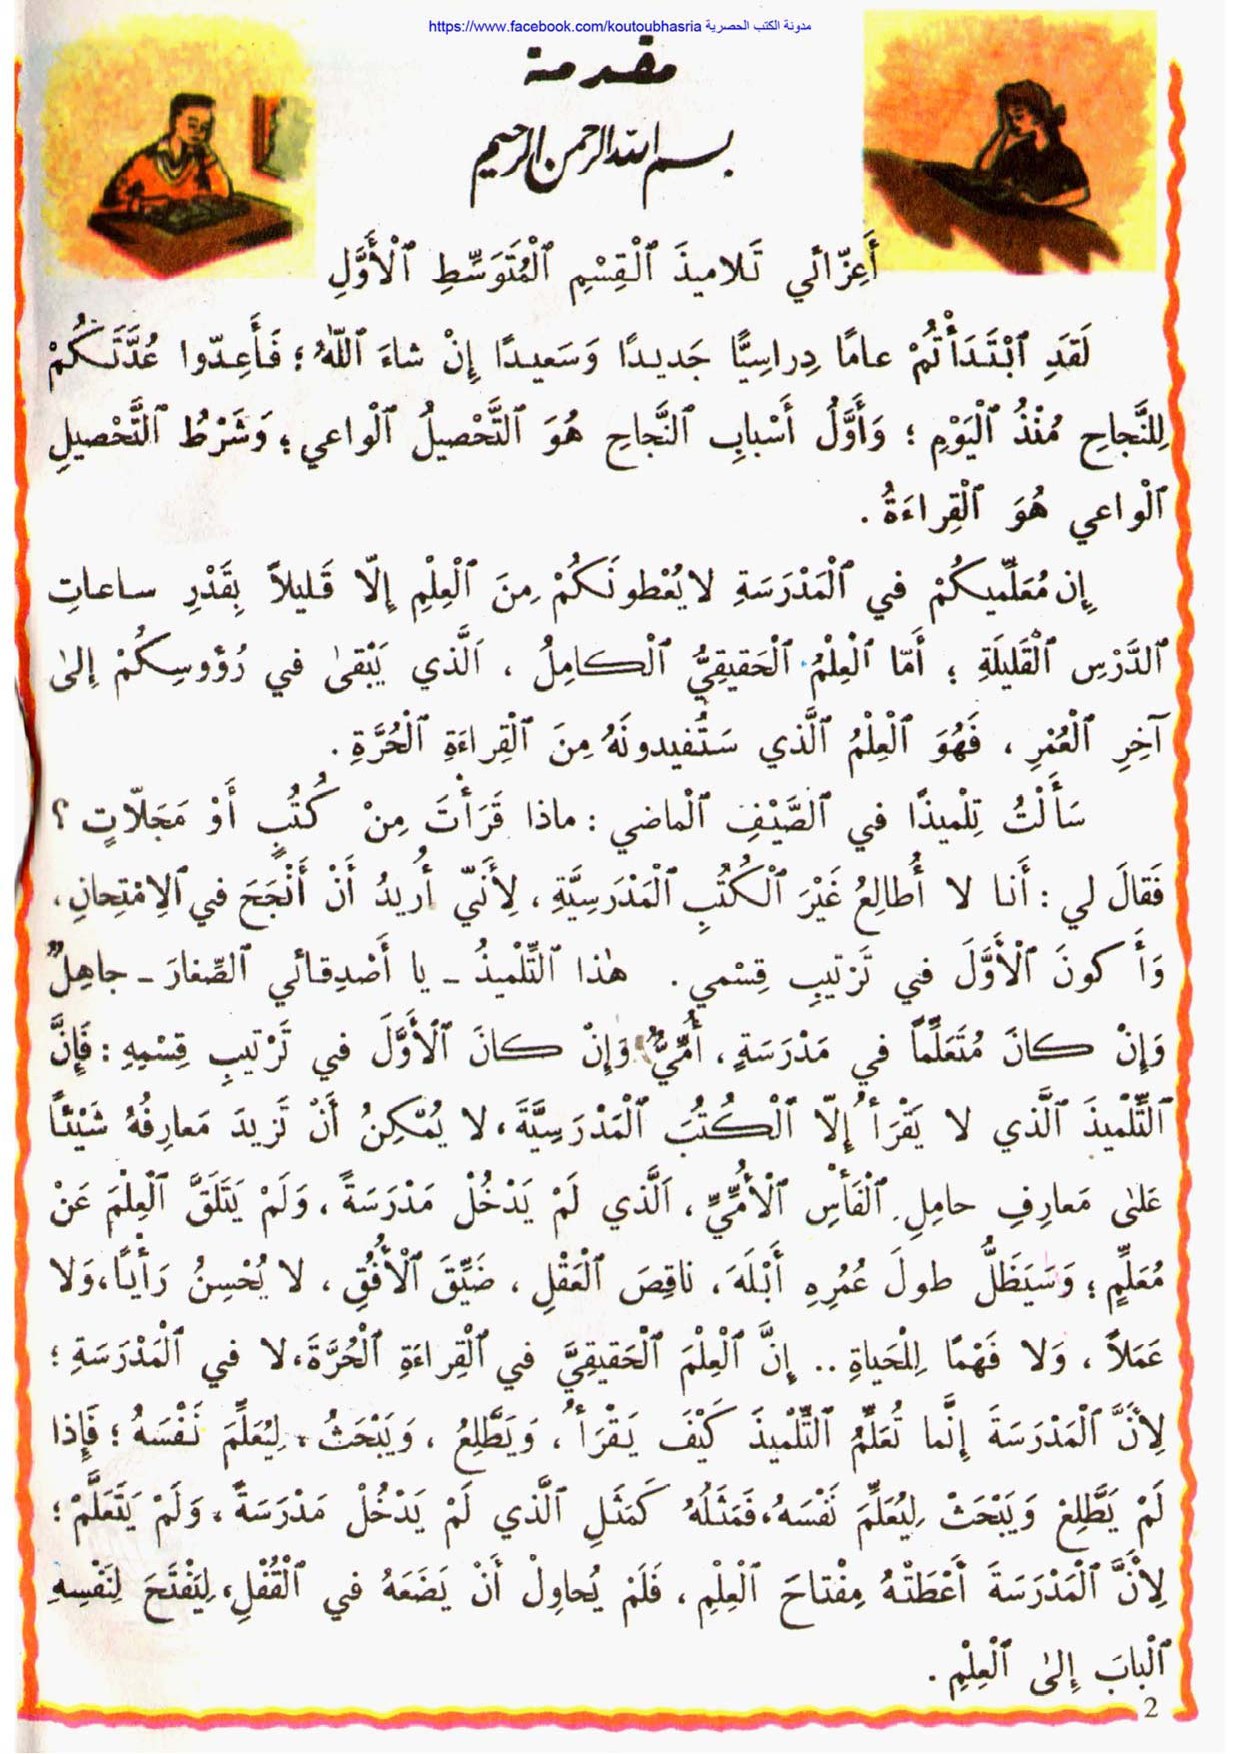 مدونة الكتب الحصرية https://www.facebook.com/koutoubhasria
مقدمة
بسم الله الرحمن الرحيم
أَعِزّائي تَلاميذَ ٱلْقِسْمِ ٱلْمُتَوَسِّطِ ٱلْأَوَّلِ
لَقَدِ ٱبْتَدَأْتُمْ عامًا دِراسِيًّا جَديدًا وَسَعيدًا إِنْ شاءَ ٱللّٰهُ ؛ فَأَعِدّوا عُدَّتَكُمْ
لِلنَّجاحِ مُنْذُ ٱلْيَوْمِ ؛ وَأَوَّلُ أَسْبابِ ٱلنَّجاحِ هُوَ ٱلتَّحْصيلُ ٱلْواعي ؛ وَشَرْطُ ٱلتَّحْصيلِ
ٱلْواعي هُوَ ٱلْقِراءَةُ .
إِن مُعَلِّميكُمْ في ٱلْمَدْرَسَةِ لا يُعْطونَكُمْ مِنَ ٱلْعِلْمِ إِلّا قَليلاً بِقَدْرِ ساعاتِ
ٱلدَّرْسِ ٱلْقَليلَةِ ؛ أَمّا ٱلْعِلْمُ ٱلْحَقيقِيُّ ٱلْكامِلُ ، ٱلَّذي يَبْقىٰ في رُؤوسِكُمْ إِلىٰ
آخِرِ ٱلْعُمْرِ ، فَهُوَ ٱلْعِلْمُ ٱلَّذي سَتُفيدونَهُ مِنَ ٱلْقِراءَةِ ٱلْحُرَّةِ .
سَأَلْتُ تِلْميذًا في ٱلصَّيْفِ ٱلْماضي : ماذا قَرَأْتَ مِنْ كُتُبٍ أَوْ مَجَلّاتٍ ؟
فَقالَ لي : أَنا لا أُطالِعُ غَيْرَ ٱلْكُتُبِ ٱلْمَدْرَسِيَّةِ ، لِأَنّي أُريدُ أَنْ أَنْجَحَ في ٱلِامْتِحانِ ،
وَأَكونَ ٱلْأَوَّلَ في تَرْتيبِ قِسْمي . هٰذا ٱلتِّلْميذُ ـ يا أَصْدِقائي ٱلصِّغارَ ـ جاهِلٌ
وَإِنْ كانَ مُتَعَلِّمًا في مَدْرَسَةٍ ، أُمِّيٌّ وَإِنْ كانَ ٱلْأَوَّلَ في تَرْتيبِ قِسْمِهِ : فَإِنَّ
ٱلتِّلْميذَ ٱلَّذي لا يَقْرَأُ إِلّا ٱلْكُتُبَ ٱلْمَدْرَسِيَّةَ ، لا يُمْكِنُ أَنْ تَزيدَ مَعارِفُهُ شَيْئًا
عَلىٰ مَعارِفِ حامِلِ ٱلْفَأْسِ ٱلْأُمِّيِّ ، ٱلَّذي لَمْ يَدْخُلْ مَدْرَسَةً ، وَلَمْ يَتَلَقَّ ٱلْعِلْمَ عَنْ
مُعَلِّمٍ ؛ وَسَيَظَلُّ طولَ عُمُرِهِ أَبْلَهَ ، ناقِصَ ٱلْعَقْلِ ، ضَيِّقَ ٱلْأُفُقِ ، لا يُحْسِنُ رَأْيًا ، وَلا
عَمَلاً ، وَلا فَهْمًا لِلْحَياةِ .. إِنَّ ٱلْعِلْمَ ٱلْحَقيقِيَّ في ٱلْقِراءَةِ ٱلْحُرَّةِ ، لا في ٱلْمَدْرَسَةِ ؛
لِأَنَّ ٱلْمَدْرَسَةَ إِنَّما تُعَلِّمُ ٱلتِّلْميذَ كَيْفَ يَقْرَأُ ، وَيَطَّلِعُ ، وَيَبْحَثُ ، لِيُعَلِّمَ نَفْسَهُ ؛ فَإِذا
لَمْ يَطَّلِعْ وَيَبْحَثْ لِيُعَلِّمَ نَفْسَهُ ، فَمَثَلُهُ كَمَثَلِ ٱلَّذي لَمْ يَدْخُلْ مَدْرَسَةً ، وَلَمْ يَتَعَلَّمْ ؛
لِأَنَّ ٱلْمَدْرَسَةَ أَعْطَتْهُ مِفْتاحَ ٱلْعِلْمِ ، فَلَمْ يُحاوِلْ أَنْ يَضَعَهُ في ٱلْقُفْلِ ، لِيَفْتَحَ لِنَفْسِهِ
ٱلْبابَ إِلىٰ ٱلْعِلْمِ .
2